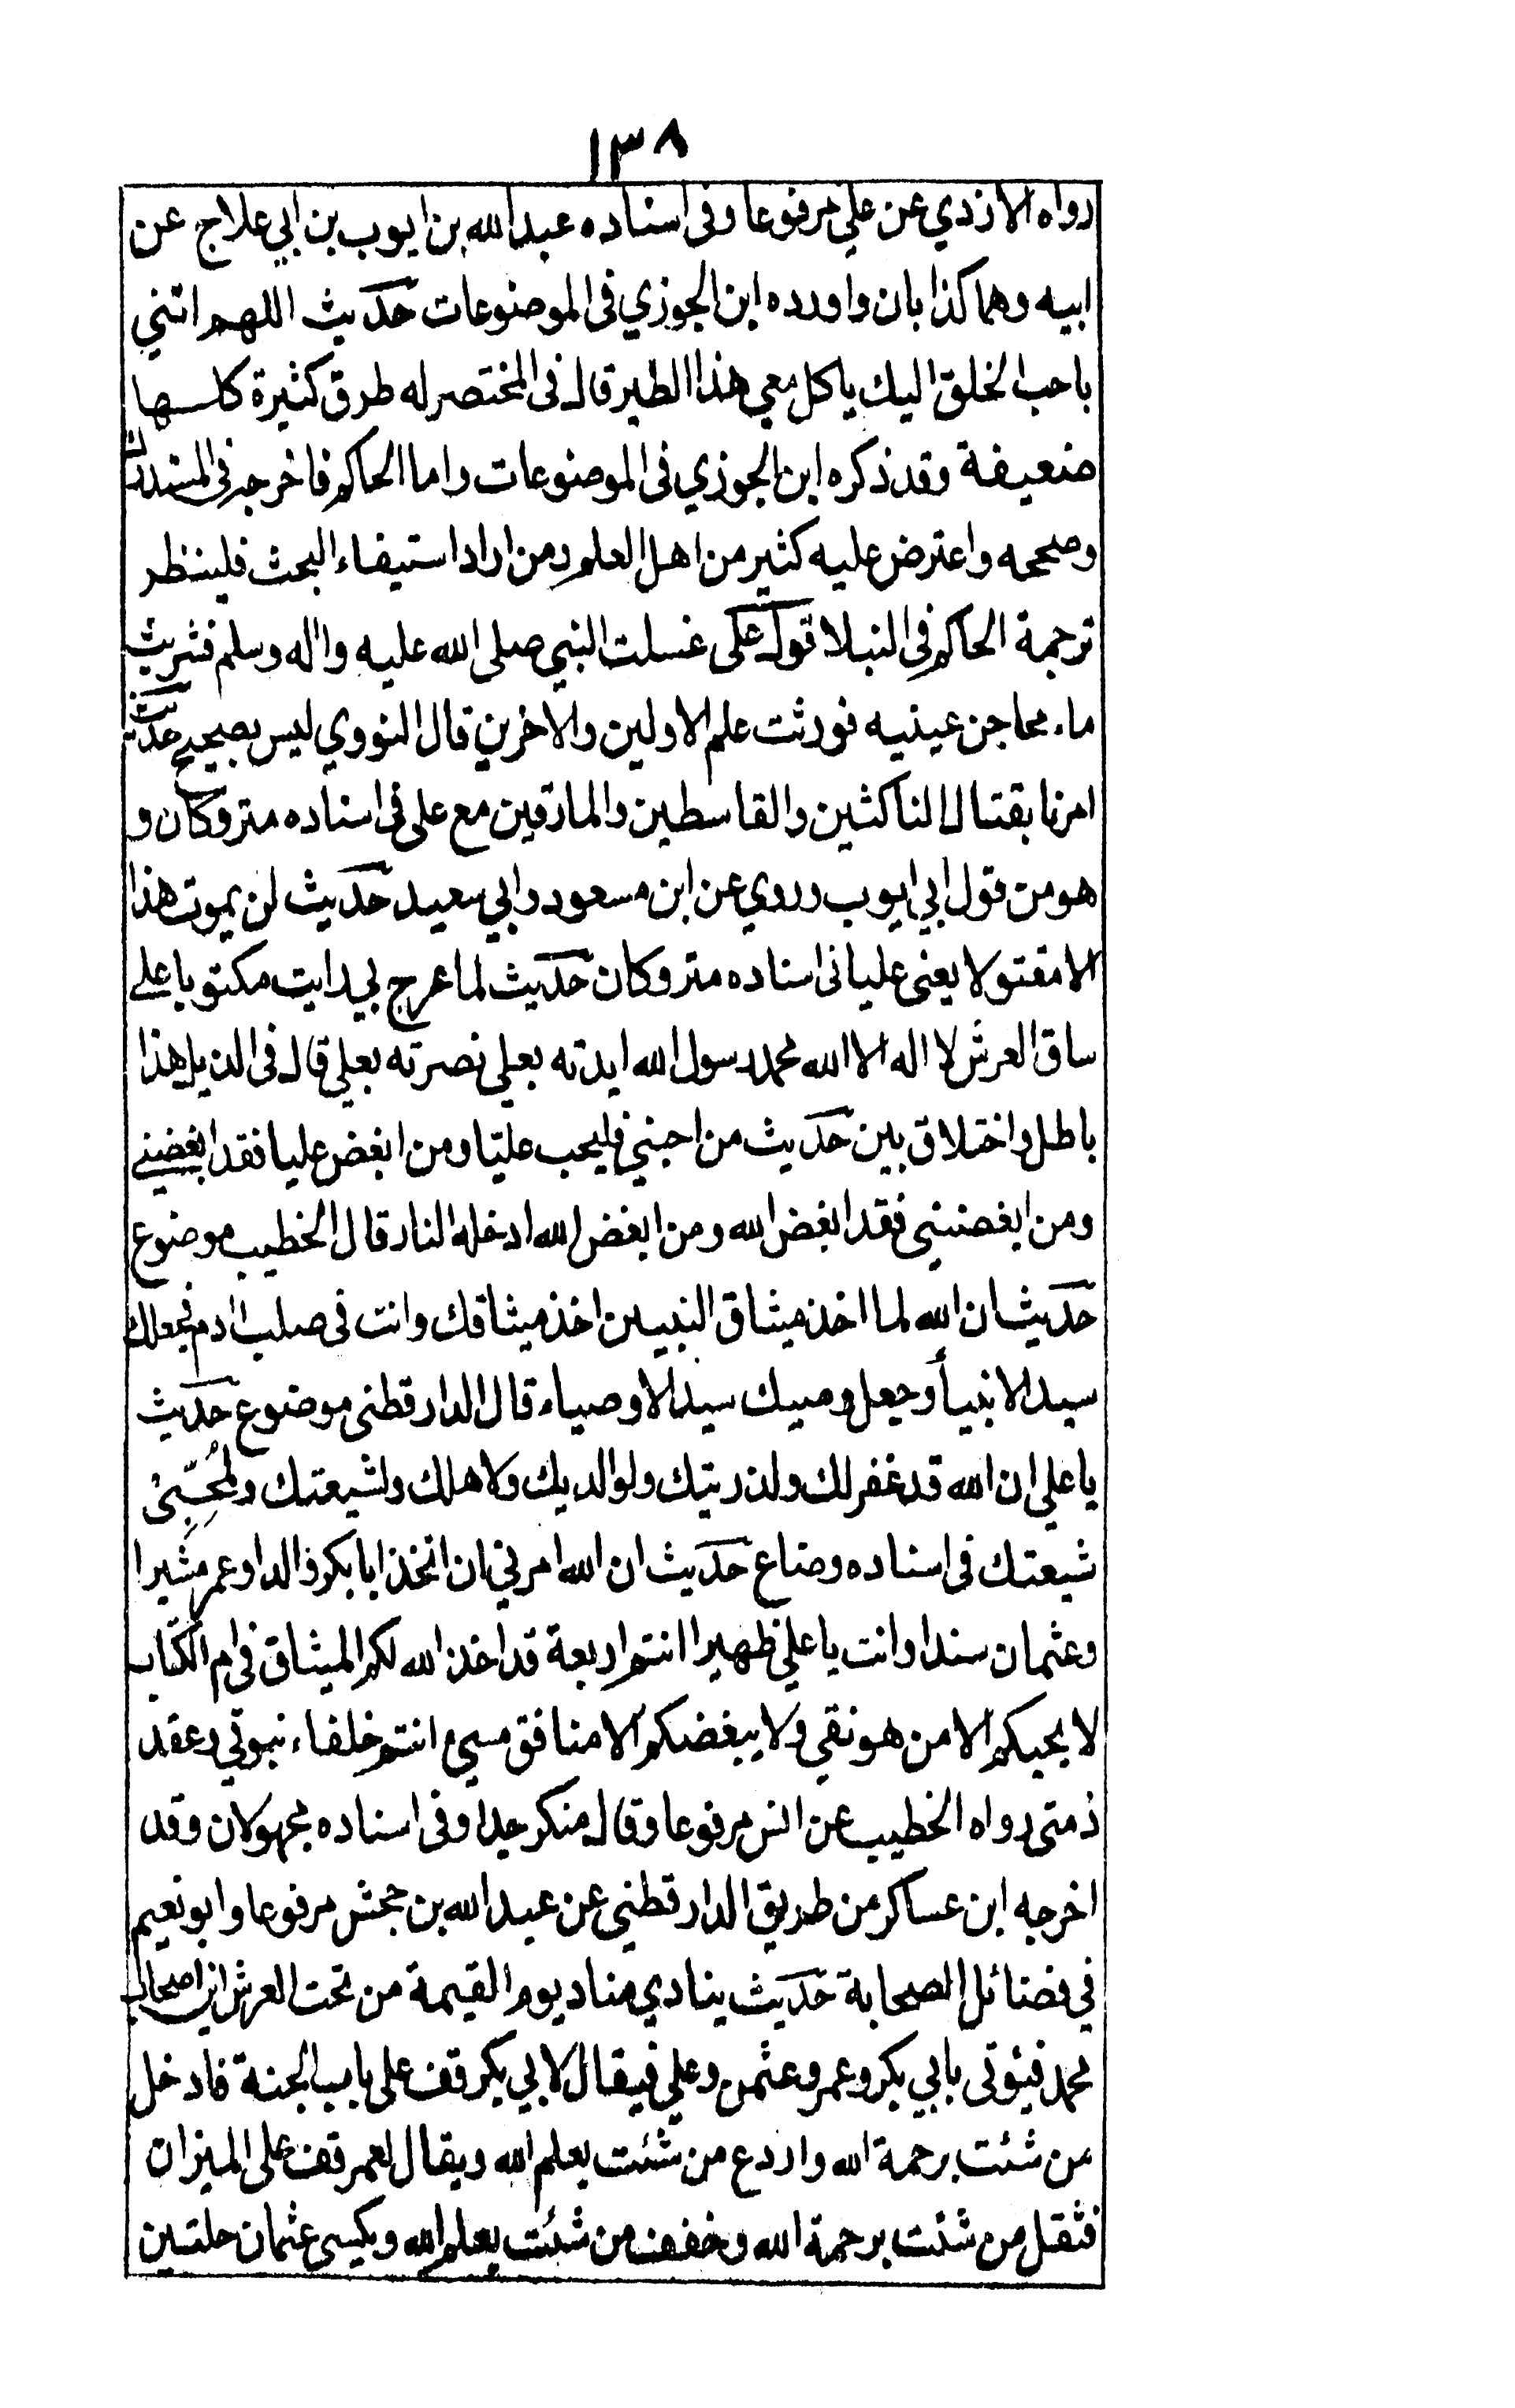 ١٣٨
رواه الازدي عن علي مرفوعا وفى اسناده عبد الله بن ايوب بن ابي علاج عن
ابيه وهما كذابان واورده ابن الجوزي فى الموضوعات حديث اللهم اتني
باحب الخلق اليك ياكل معي هذا الطير قال فى المختصر له طرق كثيرة كلها
ضعيفة وقد ذكره ابن الجوزي فى الموضوعات واما الحاكم فاخرجه فى المستدرك
وصححه واعترض عليه كثير من اهل العلم ومن اراد استيفاء البحث فلينظر
ترجمة الحاكم فى النبلا قول على غسلت النبي صلى الله عليه واله وسلم فشربت
ماء محاجن عينيه فورثت علم الاولين والاخرين قال النووي ليس بصحيح حديث
امرنا بقتال الناكثين والقاسطين والمارقين مع على فى اسناده متروكان و
هو من قول ابي ايوب وروي عن ابن مسعود وابي سعيد حديث لن يموت هذا
الا مقتولا يعنى عليا فى اسناده متروكان حديث لما عرج بي رايت مكتوبا على
ساق العرش لا اله الا الله محمد رسول الله ايدته بعلي نصرته بعلي قال فى الذيل هذا
باطل واختلاق بين حديث من احبني فليحب عليّا ومن ابغض عليا فقد ابغضني
ومن ابغضنني فقد ابغض الله ومن ابغض الله ادخله النار قال الخطيب موضوع
حديث ان الله لما اخذ ميثاق النبيين اخذ ميثاقك وانت فى صلب ادم فجعلك
سيد الانبيأ وجعل وصيك سيد الاوصياء قال الدارقطنى موضوع حديث
يا علي ان الله قد غفر لك ولذريتك ولوالديك ولاهلك ولشيعتك ولمُحِبّي
شيعتك فى اسناده وضاع حديث ان الله امرني ان اتخذ ابا بكر والدا وعمر مشيرا
وعثمان سندا وانت يا علي ظهيرا انتم اربعة قد اخذ الله لكم الميثاق فى ام الكتاب
لا يحبكم الا من هو نقي ولا يبغضكم الا منافق مسئ انتم خلفاء نبوتي وعقد
ذمتى رواه الخطيب عن انس مرفوعا وقال منكر جدا وفى اسناده مجهولان وقد
اخرجه ابن عساكر من طريق الدارقطني عن عبد الله بن جحش مرفوعا وابو نعيم
في فضائل الصحابة حديث ينادي مناد يوم القيمة من تحت العرش اين اصحاب
محمد فيئوتى بابي بكر وعمر وعثمن وعلي فيقال لابي بكر قف على باب الجنة فادخل
من شئت برحمة الله واردع من شئت بعلم الله ويقال لعمر قف على الميزان
فثقل من شئت برحمة الله وخفف من شئت بعلم الله ويكسى عثمان حلتين